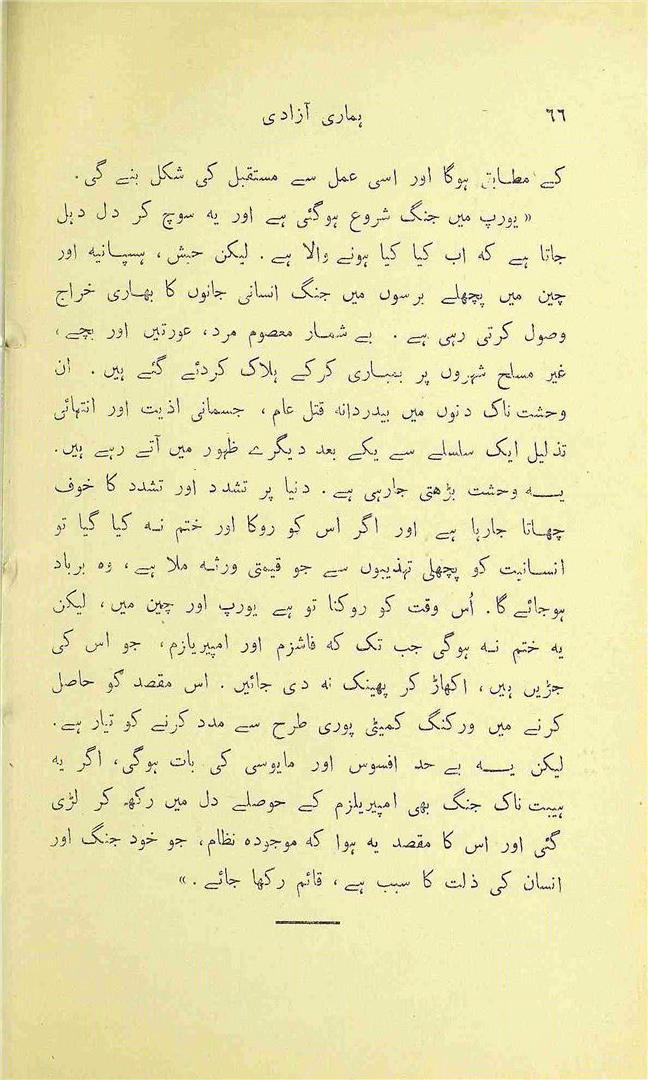 ٦٦ ہماری آزادی
کے مطابق ہوگا اور اسی عمل سے مستقبل کی شکل بنے گی.
« یورپ میں جنگ شروع ہوگئی ہے اور یہ سوچ کر دل دہل
جاتا ہے کہ اب کیا کیا ہونے والا ہے. لیکن حبش، ہسپانیہ اور
چین میں پچھلے برسوں میں جنگ انسانی جانوں کا بھاری خراج
وصول کرتی رہی ہے. بے شمار معصوم مرد، عورتیں اور بچے،
غیر مسلح شہروں پر بمباری کرکے ہلاک کردئے گئے ہیں. ان
وحشت ناک دنوں میں بیدردانہ قتل عام، جسمانی اذیت اور انتہائی
تذلیل ایک سلسلے سے یکے بعد دیگرے ظہور میں آتے رہے ہیں.
یہ وحشت بڑھتی جارہی ہے. دنیا پر تشدد اور تشدد کا خوف
چھاتا جارہا ہے اور اگر اس کو روکا اور ختم نہ کیا گیا تو
انسانیت کو پچھلی تہذیبوں سے جو قیمتی ورثہ ملا ہے، وہ برباد
ہوجائے گا. اُس وقت کو روکنا تو ہے یورپ اور چین میں، لیکن
یہ ختم نہ ہوگی جب تک کہ فاشزم اور امپیریلزم، جو اس کی
جڑیں ہیں، اکھاڑ کر پھینک نہ دی جائیں. اس مقصد کو حاصل
کرنے میں ورکنگ کمیٹی پوری طرح سے مدد کرنے کو تیار ہے.
لیکن یہ بے حد افسوس اور مایوسی کی بات ہوگی، اگر یہ
ہیبت ناک جنگ بھی امپیریلزم کے حوصلے دل میں رکھ کر لڑی
گئی اور اس کا مقصد یہ ہوا کہ موجودہ نظام، جو خود جنگ اور
انسان کی ذلت کا سبب ہے، قائم رکھا جائے. »